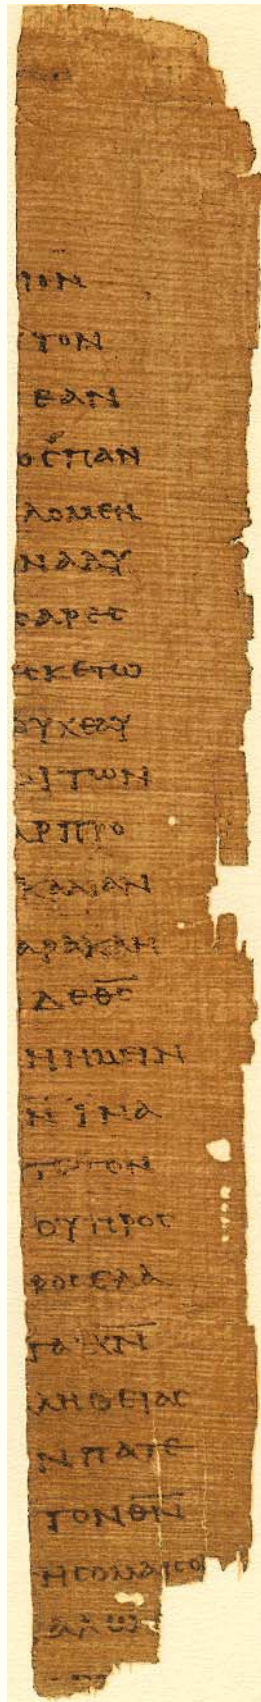 ΡΟΝ
ΥΤΟΝ
ΕΑΝ
ΟΣ ΠΑΝ
ΛΟΜΕΝ
ΝΑΔΥ
ΕΑΡΕΣ
ΕΚΕΤΩ
ΟΥΧΕΑΥ
ΔΙΤΩΝ
ΑΡΠΡΟ
ΚΑΛΙΑΝ
ΑΡΑΚΛΗ
ΔΕΘ̅Σ̅
ΗΗΜΕΙΝ
Ν ΪΝΑ
ΤΕΤΟΝ
ΟΥΠΡΟΣ
ΡΟΣΕΛΑ
ΓΑΙΧ̅Ν̅
ΛΗΘΕΙΑΣ
ΝΠΑΤΕ
ΤΟΝΘ̅Ν̅
ΗΣΟΜΑΙΣΟΙ
ΑΛΩ